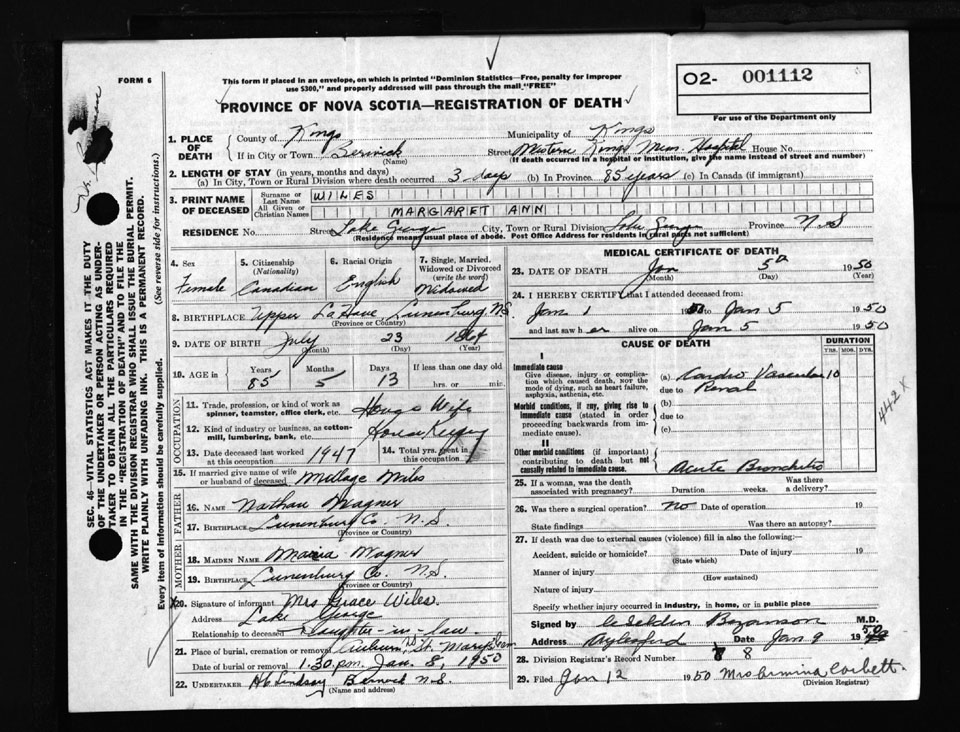 FORM 6
This form if placed in an envelope, on which is printed "Dominion Statistics—Free, penalty for improper
use $300," and properly addressed will pass through the mail "FREE"
PROVINCE OF NOVA SCOTIA—REGISTRATION OF DEATH
O2- 001112
For use of the Department only
1. PLACE OF DEATH
County of Kings Municipality of Kings
If in City or Town Berwick (Name) Street Western Kings Mem. Hospital House No.
(If death occurred in a hospital or institution, give the name instead of street and number)
2. LENGTH OF STAY (in years, months and days)
(a) In City, Town or Rural Division where death occurred 3 days (b) In Province 85 years (c) In Canada (if immigrant)
3. PRINT NAME OF DECEASED
Surname or Last Name WILES
All Given or Christian Names MARGARET ANN
RESIDENCE No. Street Lake George City, Town or Rural Division Lake George Province N.S
(Residence means usual place of abode. Post Office Address for residents in rural parts not sufficient)
4. Sex Female
5. Citizenship (Nationality) Canadian
6. Racial Origin English
7. Single, Married, Widowed or Divorced (write the word) Widowed
8. BIRTHPLACE Upper LaHave Lunenburg, N.S.
(Province or Country)
9. DATE OF BIRTH July 23 1864
(Month) (Day) (Year)
10. AGE in Years 85 Months 5 Days 13 If less than one day old hrs. or min.
OCCUPATION
11. Trade, profession, or kind of work as spinner, teamster, office clerk, etc. House Wife
12. Kind of industry or business, as cotton-mill, lumbering, bank, etc. House Keeping
13. Date deceased last worked at this occupation 1947
14. Total yrs. spent in this occupation
15. If married give name of wife or husband of deceased Millage Wiles
FATHER
16. NAME Nathan Wagner
17. BIRTHPLACE Lunenburg Co. N.S.
(Province or Country)
MOTHER
18. MAIDEN NAME Wagner
19. BIRTHPLACE Lunenburg Co. N.S.
(Province or Country)
X20. Signature of informant Mrs Grace Wiles.
Address Lake George
Relationship to deceased Daughter-in-law.
21. Place of burial, cremation or removal Auburn, St. Mary's
Date of burial or removal 1.30 p.m. Jan. 8, 1950
22. UNDERTAKER Lindsay Berwick N.S.
(Name and address)
MEDICAL CERTIFICATE OF DEATH
23. DATE OF DEATH Jan 5th 1950
(Month) (Day) (Year)
24. I HEREBY CERTIFY that I attended deceased from:
Jan 1 1950 to Jan 5 1950
and last saw her alive on Jan 5 1950
CAUSE OF DEATH
DURATION
YRS. MOS. DYS.
I
Immediate cause
Give disease, injury or complication which caused death, not the mode of dying, such as heart failure, asphyxia, asthenia, etc.
(a) Cardio Vascular 10
due to Renal
Morbid conditions, if any, giving rise to immediate cause (stated in order proceeding backwards from immediate cause).
(b)
due to
(c)
II
Other morbid conditions (if important) contributing to death but not causally related to immediate cause.
Acute Bronchitis
442 X
25. If a woman, was the death associated with pregnancy? Duration weeks. Was there a delivery?
26. Was there a surgical operation? No Date of operation 19
State findings Was there an autopsy?
27. If death was due to external causes (violence) fill in also the following:—
Accident, suicide or homicide? Date of injury 19
(State which)
Manner of injury
(How sustained)
Nature of injury
Specify whether injury occurred in industry, in home, or in public place
Signed by Bezanson M.D.
Address Aylesford Date Jan 9 1950
28. Division Registrar's Record Number 8
29. Filed Jan 12 1950 Mrs Ermina Corbett.
(Division Registrar)
SEC. 46—VITAL STATISTICS ACT MAKES IT THE DUTY
OF THE UNDERTAKER OR PERSON ACTING AS UNDERTAKER TO OBTAIN ALL THE PARTICULARS REQUIRED
IN THE "REGISTRATION OF DEATH" AND TO FILE THE
SAME WITH THE DIVISION REGISTRAR WHO SHALL ISSUE THE BURIAL PERMIT.
WRITE PLAINLY WITH UNFADING INK. THIS IS A PERMANENT RECORD.
Every item of information should be carefully supplied. (See reverse side for instructions.)